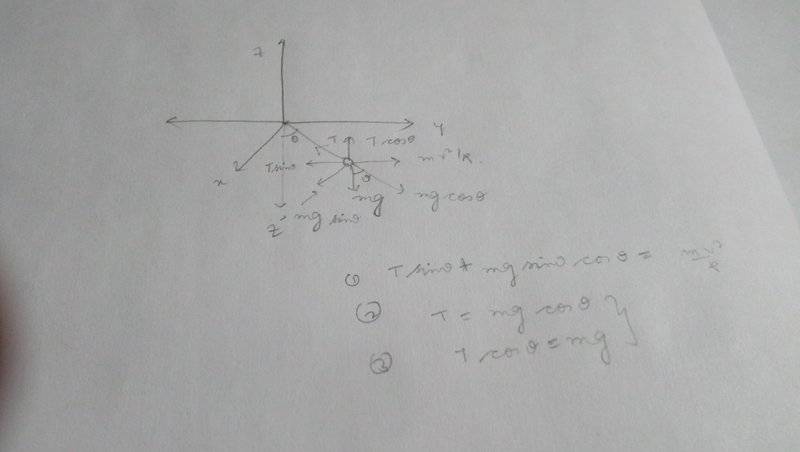 z
y
θ
T
T cosθ
T sinθ
mv²/R.
x
θ
mg
mg cosθ
z'
mg sinθ
① T sinθ + mg sinθ cosθ = mv²/R
② T = mg cosθ }
③ T cosθ = mg